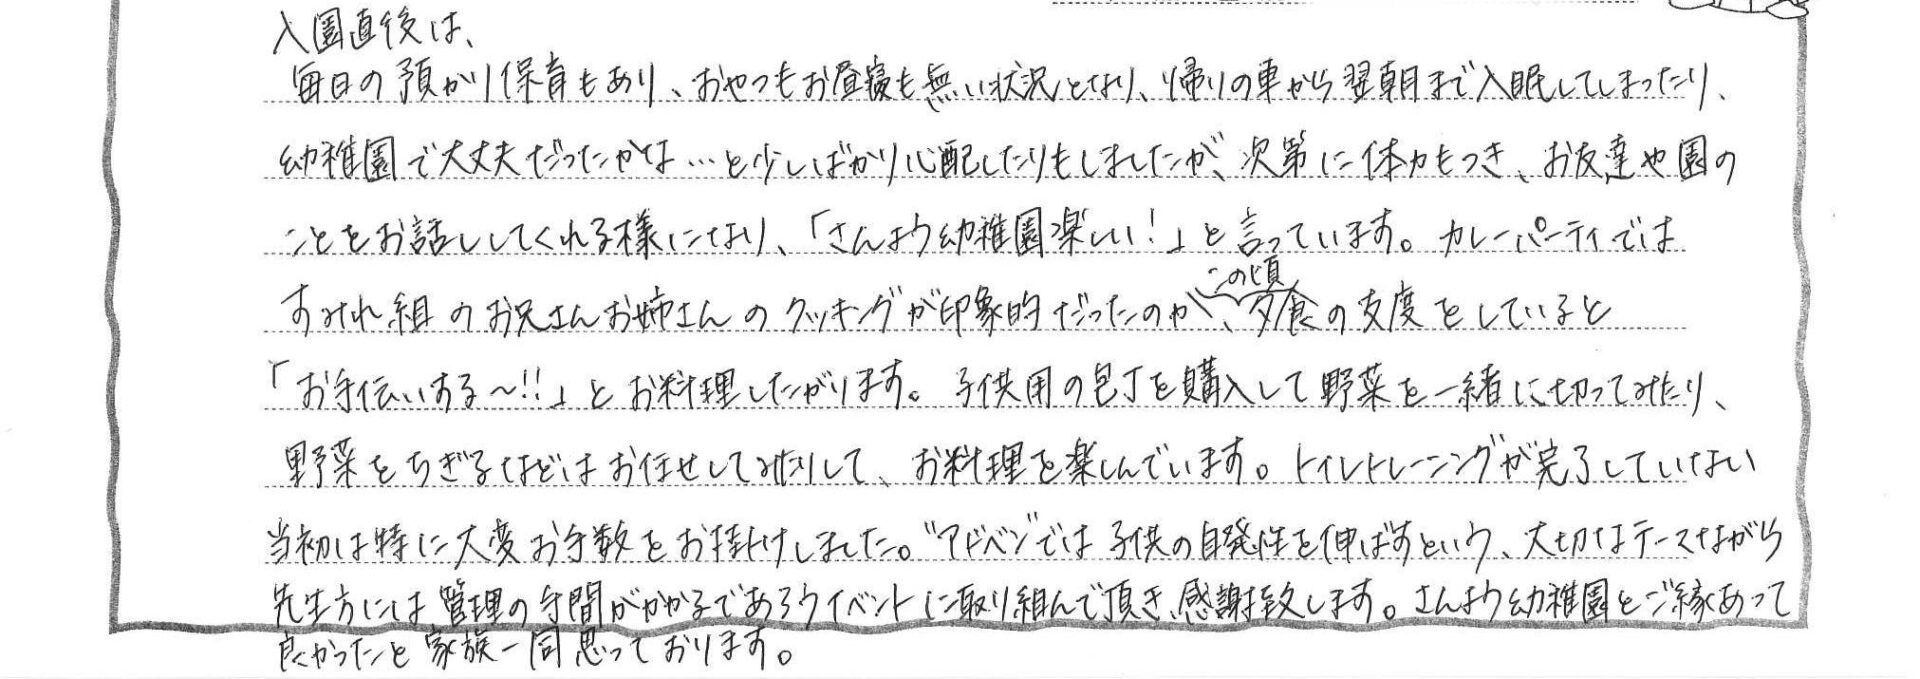 入園直後は、
毎日の預かり保育もあり、おやつもお昼寝も無い状況となり、帰りの車から翌朝まで入眠してしまったり、
幼稚園で大丈夫だったかな…と少しばかり心配したりもしましたが、次第に体力もつき、お友達や園の
ことをお話ししてくれる様になり、「さんよう幼稚園楽しい!」と言っています。カレーパーティでは
すみれ組のお兄さんお姉さんのクッキングが印象的だったのか、この頃夕食の支度をしていると
「お手伝いする〜!!」とお料理したがります。子供用の包丁を購入して野菜を一緒に切ってみたり、
野菜をちぎるなどはお任せしてみたりして、お料理を楽しんでいます。トイレトレーニングが完了していない
当初は特に大変お手数をお掛けしました。“アドベン”では子供の自発性を伸ばすという、大切なテーマながら
先生方には管理の手間がかかるであろうイベントに取り組んで頂き、感謝致します。さんよう幼稚園とご縁あって
良かったと家族一同思っております。